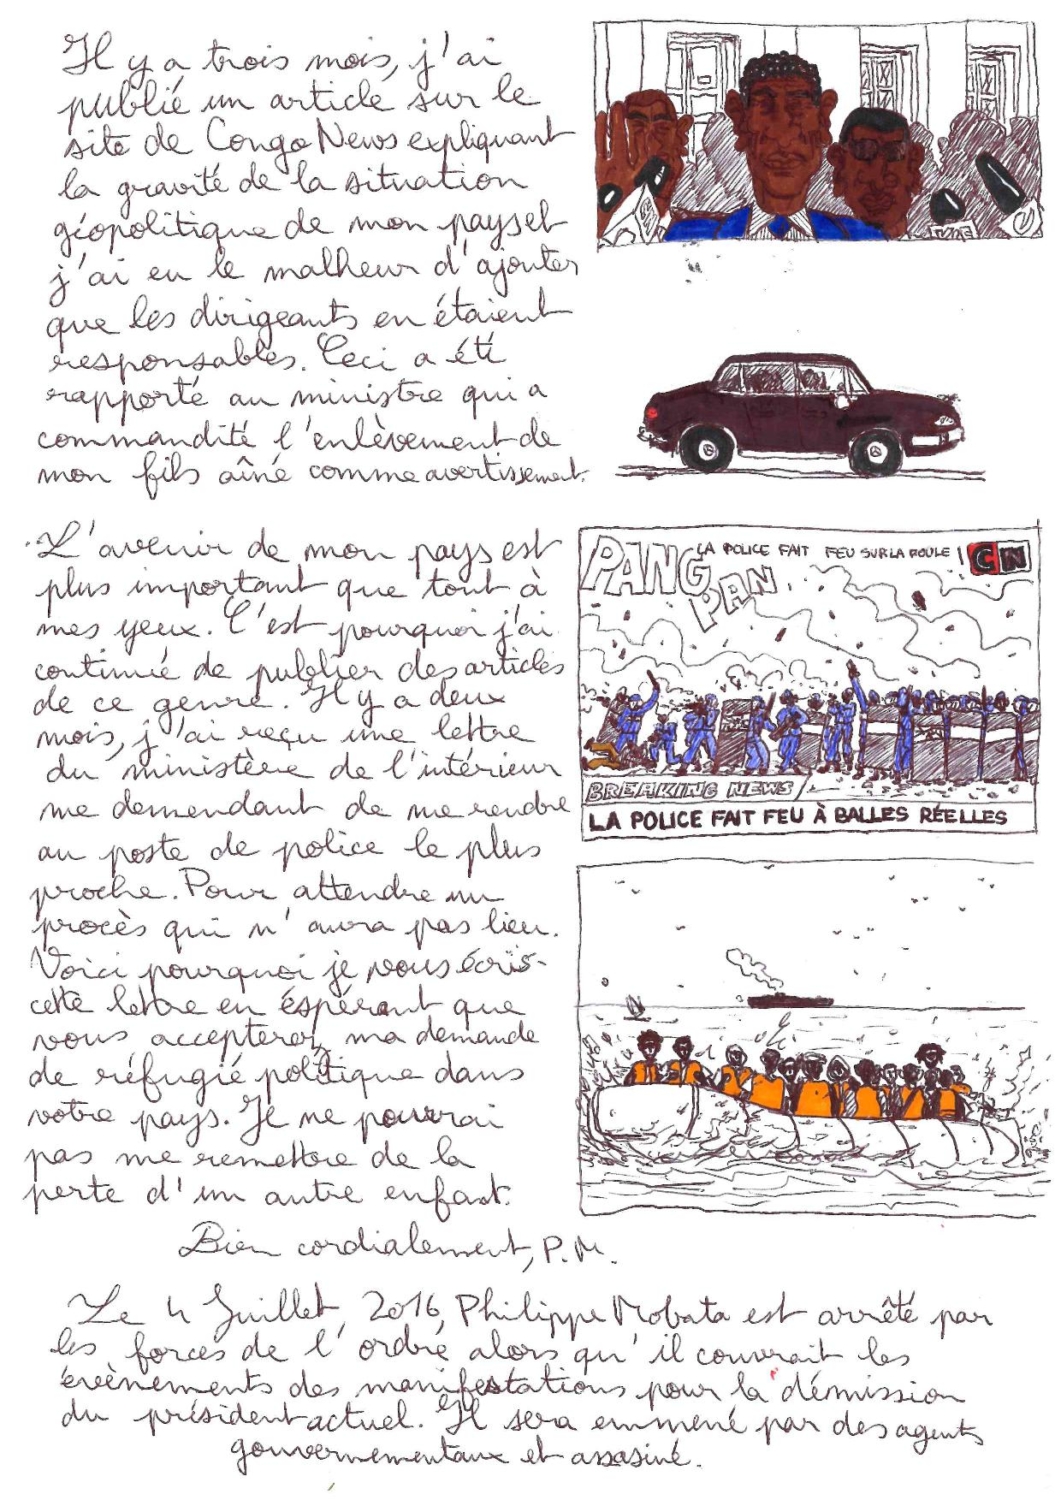 Il y a trois mois, j'ai
publié un article sur le
site de Congo News expliquant
la gravité de la situation
géopolitique de mon pays et
j'ai eu le malheur d'ajouter
que les dirigeants en étaient
responsables. Ceci a été
rapporté au ministre qui a
commandité l'enlèvement de
mon fils aîné comme avertissement.
L'avenir de mon pays est
plus important que tout à
mes yeux. C'est pourquoi j'ai
continué de publier des articles
de ce genre. Il y a deux
mois, j'ai reçu une lettre
du ministère de l'intérieur
me demandant de me rendre
au poste de police le plus
proche. Pour attendre un
procès qui n'aura pas lieu.
Voici pourquoi je vous écris
cette lettre en espérant que
vous accepterez ma demande
de réfugié politique dans
votre pays. Je ne pourrai
pas me remettre de la
perte d'un autre enfant.
Bien cordialement, P.M.
PANG
PAN
LA POLICE FAIT FEU SUR LA FOULE !
CN
BREAKING NEWS
LA POLICE FAIT FEU À BALLES RÉELLES
Le 4 Juillet, 2016, Philippe Mobata est arrêté par
les forces de l'ordre alors qu'il couvrait les
évènements des manifestations pour la démission
du président actuel. Il sera emmené par des agents
gouvernementaux et assasiné.